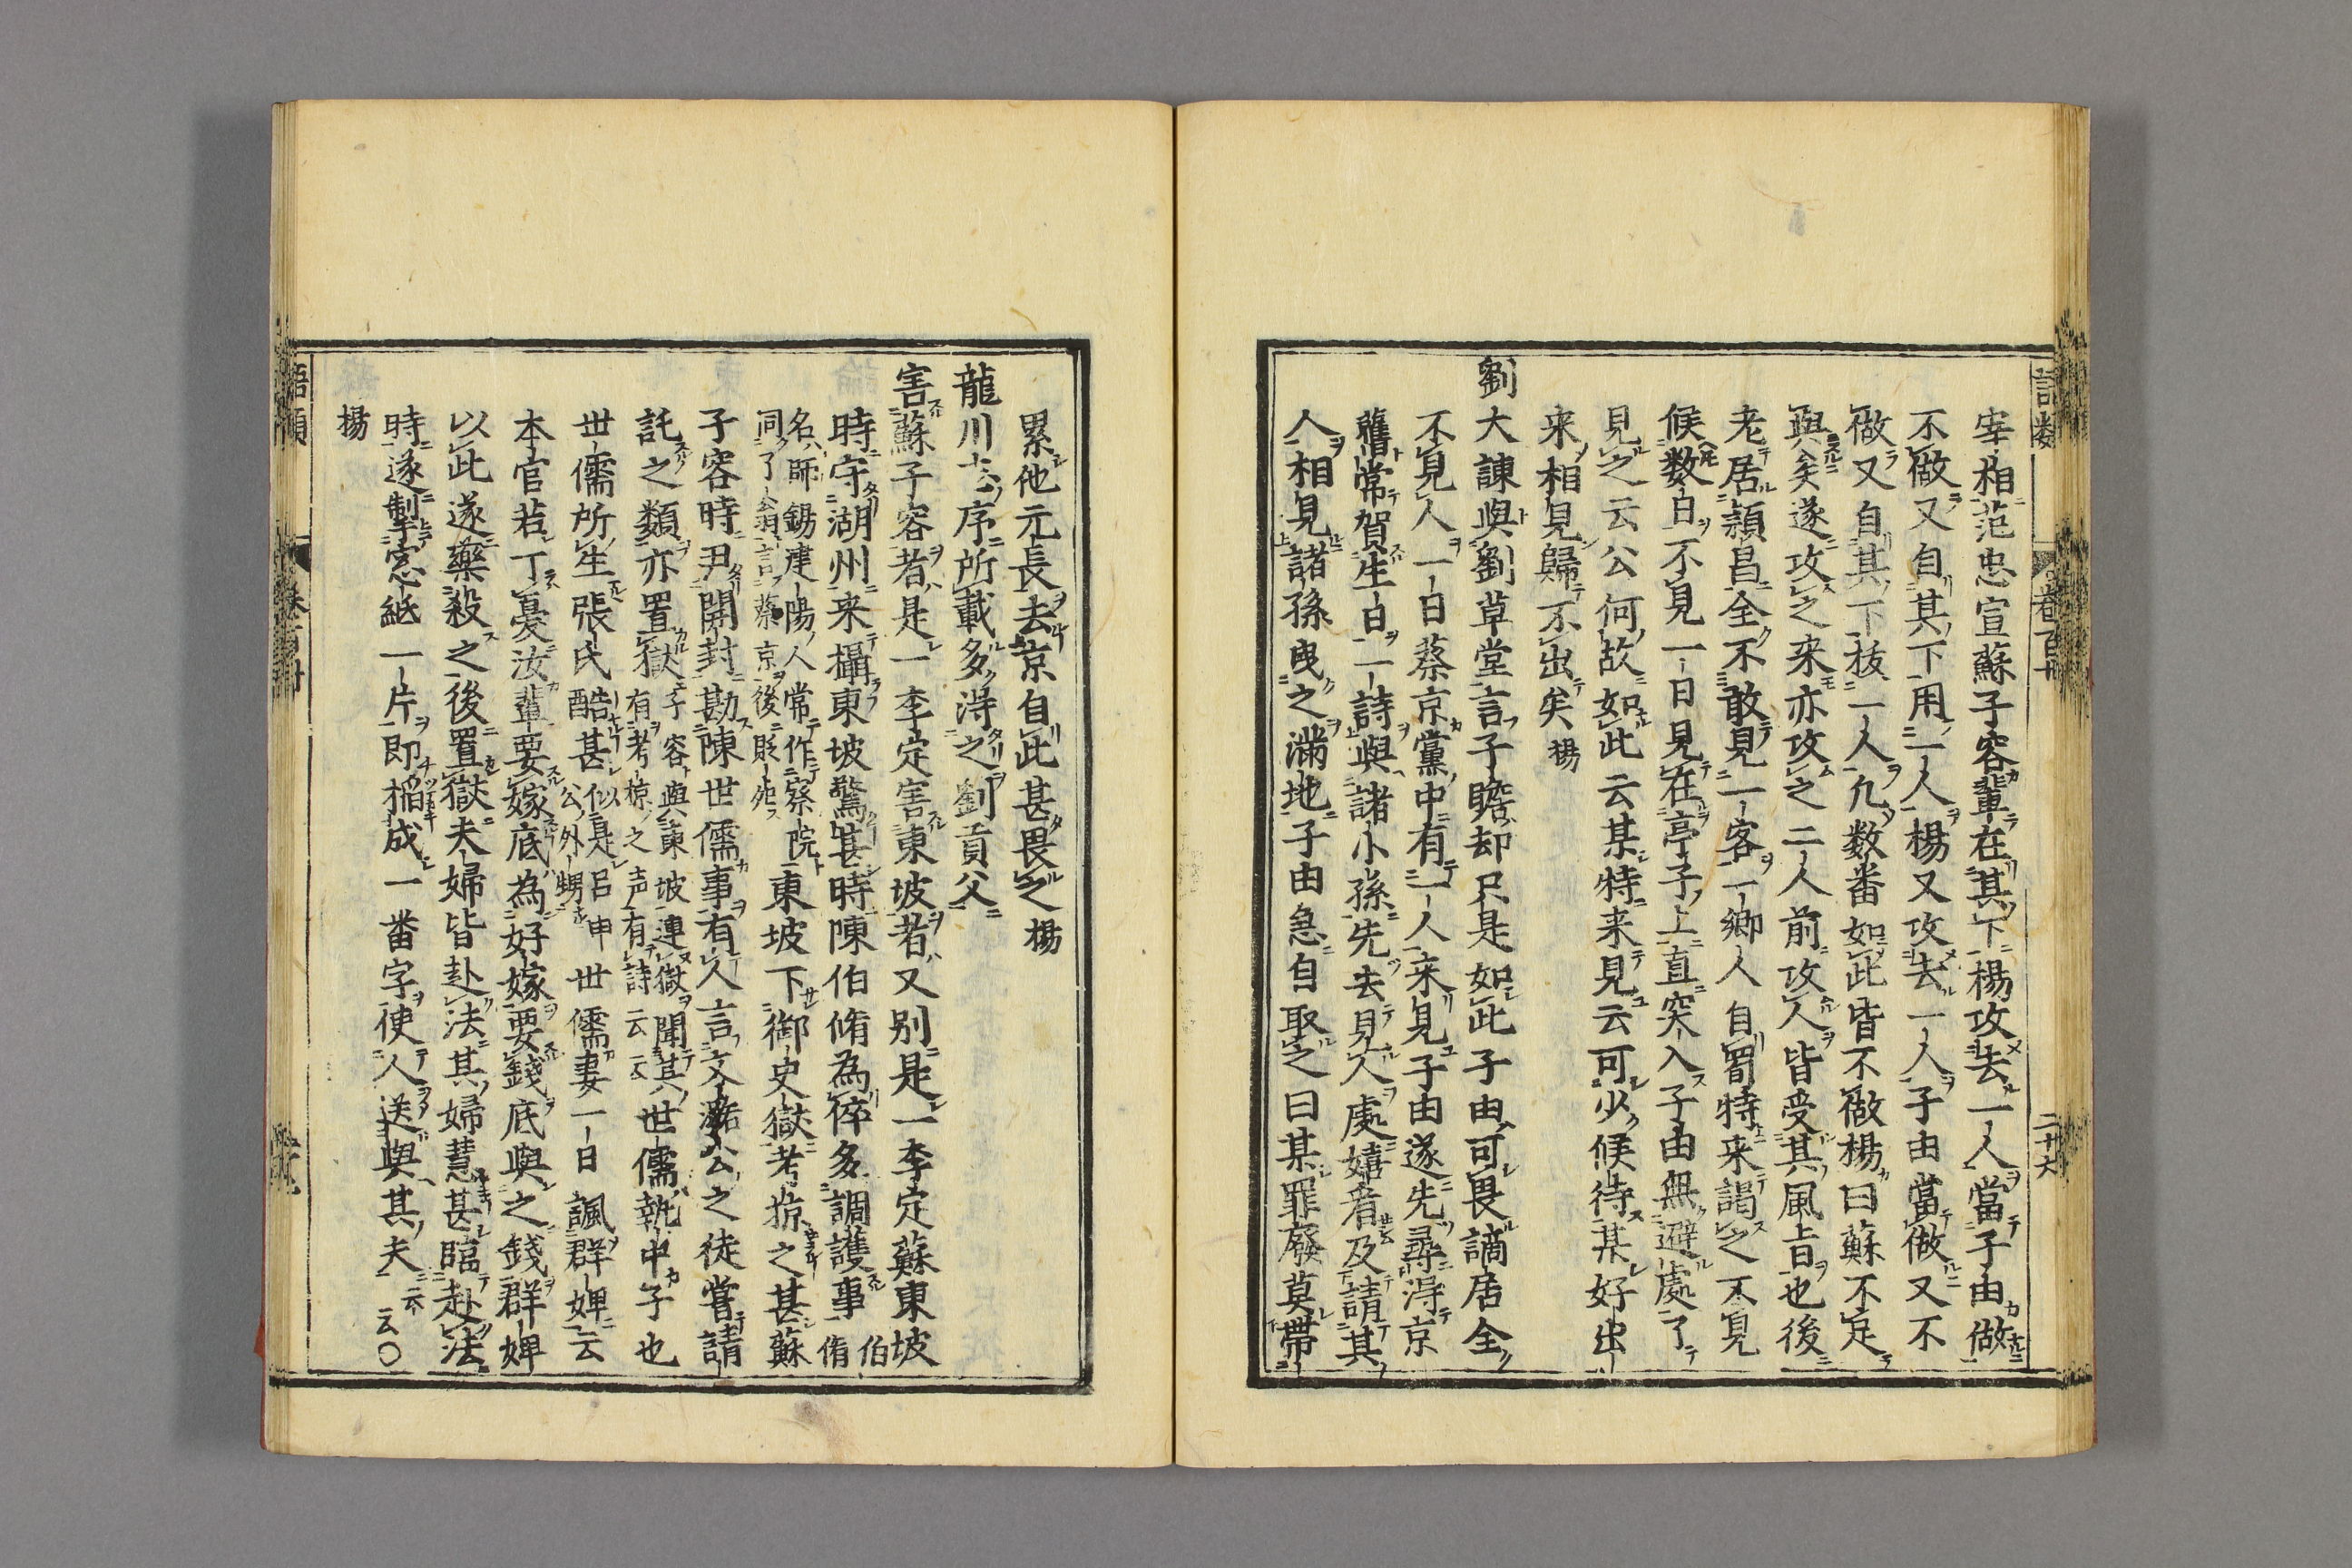 宰相范忠宣蘇子容輩在其下楊攻去一人當子由做
不做又自其下用一人楊又攻去一人子由當做又不
做又自其下抜一人凡数番如此皆不做楊曰蘇不足
與矣遂攻之来亦攻之二人前攻人皆受其風旨也後
老居潁昌全不敢見一客一郷人自蜀特来謁之不見
候数日不見一日見在亭子上直突入子由無避處了
見之云公何故如此云某特来見云可少候待某好出
来相見歸不出矣 楊
劉大諫與劉草堂言子瞻却只是如此子由可畏謫居全
不見人一日蔡京黨中有一人来見子由遂先尋淂京
舊常賀生日一詩與諸小孫先去見人處嬉看及請其
人相見諸孫曳之滿地子由急自取之曰某罪廢莫帶
累他元長去京自此甚畏之 楊
龍川志序所載多淂之劉貢父
害蘇子容者是一李定害東坡者又别是一李定蘇東坡
時守湖州来攝東坡驚甚時陳伯脩為倅多調護事 伯脩
名師錫建陽人常作察院
同了翁言蔡京後貶死
東坡下御史獄考掠之甚蘇
子容時尹開封勘陳世儒事有人言文潞公之徒嘗請
託之類亦置獄
子容與東坡連獄聞其
有考掠之声有詩云云
世儒執中子也
世儒所生張氏酷甚
似是呂申
公外甥
世儒妻一日諷群婢云
本官若丁憂汝輩要嫁底為好嫁要錢底與之錢群婢
以此遂藥殺之後置獄夫婦皆赴法其婦慧甚臨赴法
時遂掣窓紙一片即搯成一番字使人送與其夫 云云○
楊